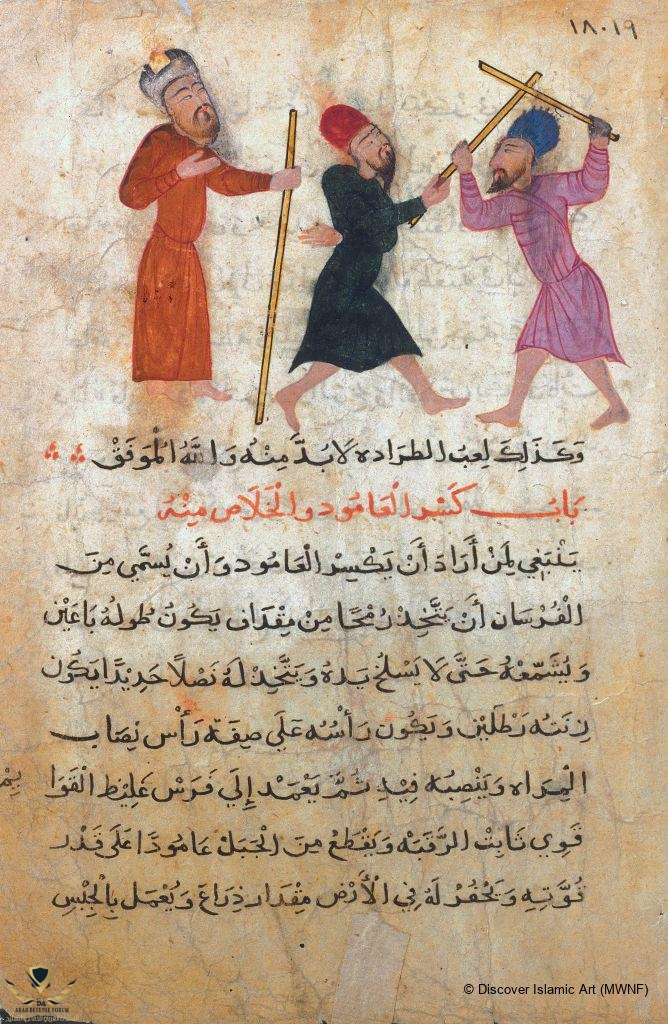 ١٨٠١٩
وَكَذَلِكَ لِعبُ الطرَاده لَا بُدَّ مِنْهُ وَاللَّهُ الْمُوَفِّقْ
بَابُ كَسْر الْعَامُود والْخَلَاص مِنْهُ
يَنْبَغِي لِمَنْ أَرَادَ أَنْ يَكْسِرْ الْعَامُود وَأَنْ يُسَمَّي مِنَ
الْفُرْسَان أَنْ يَتَّخِذ رُمْحًا مِنْ مِقْدَاف يَكُونُ طُولهُ بَاعَيْن
وَيُشَمِّعْهُ حَتَّى لَا يَسْلخُ يَدهُ وَيَتَّخِذ لَهُ نَصْلًا حَدِيْدًا يَكُون
زِنَتهُ رَطْلَيْن وَيَكُون رَأْسُهُ عَلَي صِفَة رَأْس نِصَاب
الْمِرَاه وَيَنْصِبُهُ فِيْهِ ثُمَّ يَعْمَد إِلَي فَرَسْ غَلِيْظ الْقَوَا
يِمْ
قَوِي ثَابِتْ الرَّقَبَهْ وَيَقْطَع مِنَ الْجَبَلْ عَامُودًا عَلَى قَدْر
قُوَّتِهِ وَيَحْفُرْ لَهُ فِي الْأَرْضْ مِقْدَار ذِرَاعْ وَيُعْمَل بِالْجِبْسِ
DA
ARAB DEFENSE FORUM
© Discover Islamic Art (MWNF)